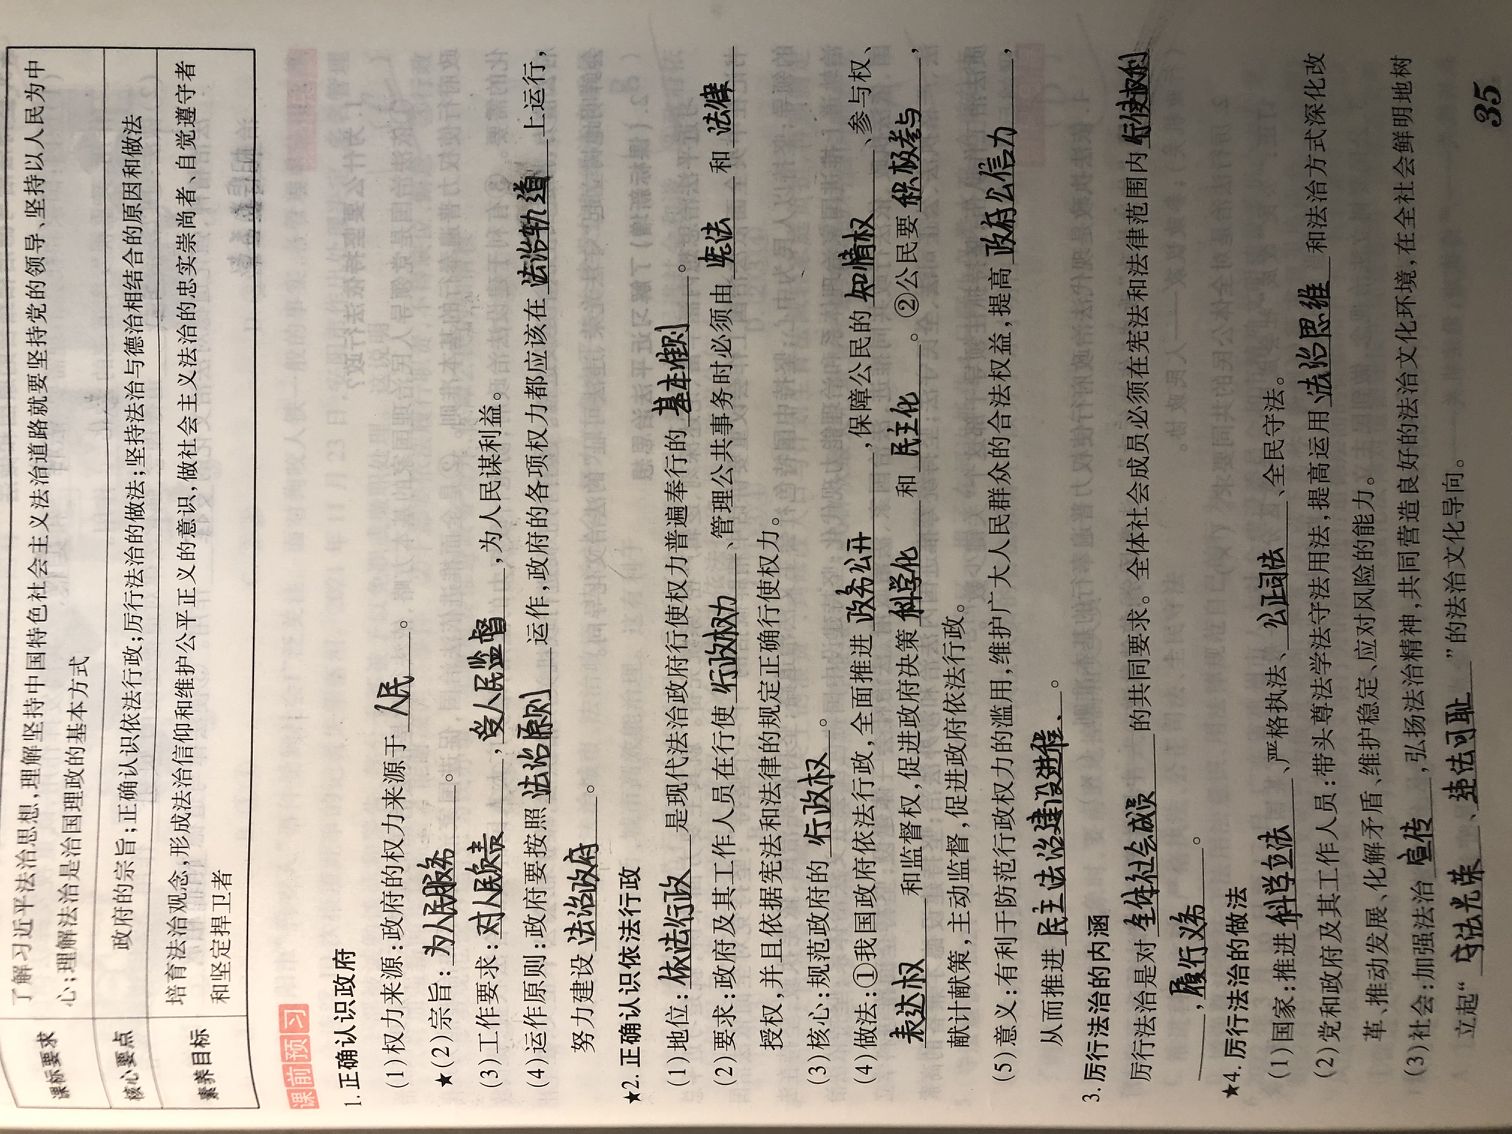 课标要求
了解习近平法治思想,理解坚持中国特色社会主义法治道路就要坚持党的领导、坚持以人民为中
心;理解法治是治国理政的基本方式
核心要点
政府的宗旨;正确认识依法行政;厉行法治的做法;坚持法治与德治相结合的原因和做法
素养目标
培育法治观念,形成法治信仰和维护公平正义的意识,做社会主义法治的忠实崇尚者、自觉遵守者
和坚定捍卫者
课前预习
1.正确认识政府
(1)权力来源:政府的权力来源于人民。
★(2)宗旨:为人民服务。
(3)工作要求:对人民负责,受人民监督,为人民谋利益。
(4)运作原则:政府要按照法治原则运作,政府的各项权力都应该在法治轨道上运行,
努力建设法治政府。
★2.正确认识依法行政
(1)地位:依法行政是现代法治政府行使权力普遍奉行的基本准则。
(2)要求:政府及其工作人员在行使行政权力、管理公共事务时必须由宪法和法律
授权,并且依据宪法和法律的规定正确行使权力。
(3)核心:规范政府的行政权。
(4)做法:①我国政府依法行政,全面推进政务公开,保障公民的知情权、参与权、
表达权和监督权,促进政府决策科学化和民主化。②公民要积极参与,
献计献策,主动监督,促进政府依法行政。
(5)意义:有利于防范行政权力的滥用,维护广大人民群众的合法权益,提高政府公信力,
从而推进民主法治建设进程.。
3.厉行法治的内涵
厉行法治是对全体社会成员的共同要求。全体社会成员必须在宪法和法律范围内行使权利
,履行义务。
★4.厉行法治的做法
(1)国家:推进科学立法、严格执法、公正司法、全民守法。
(2)党和政府及其工作人员:带头尊法学法守法用法,提高运用法治思维和法治方式深化改
革、推动发展、化解矛盾、维护稳定、应对风险的能力。
(3)社会:加强法治宣传,弘扬法治精神,共同营造良好的法治文化环境,在全社会鲜明地树
立起“守法光荣、违法可耻”的法治文化导向。
35